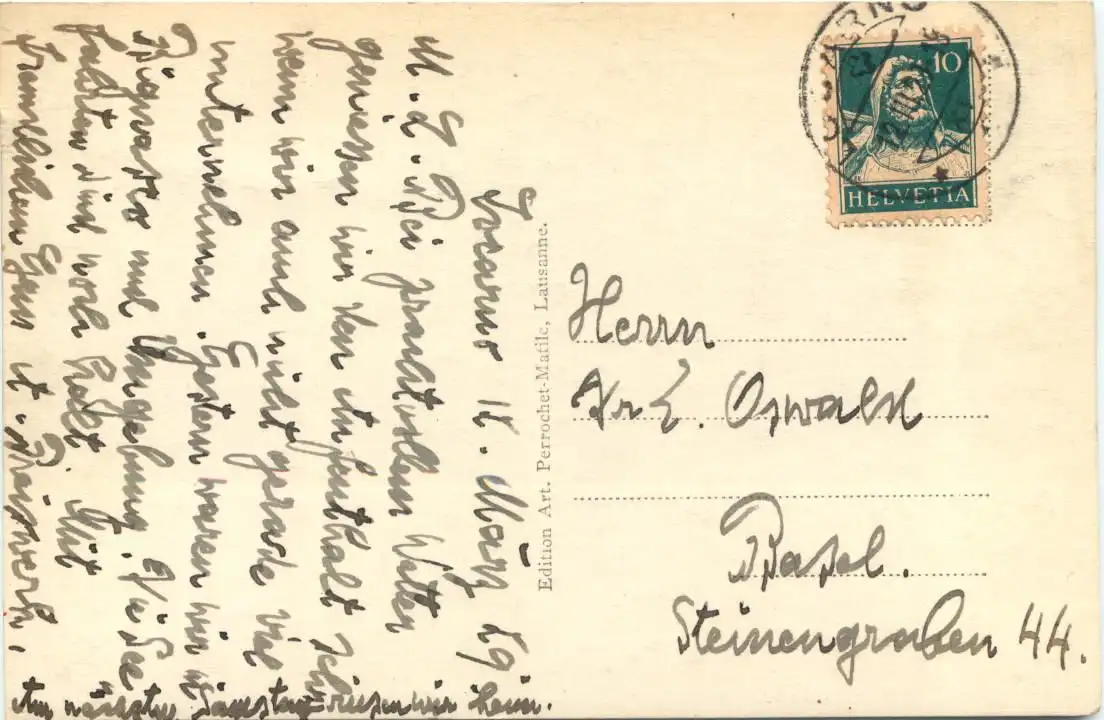 Locarno 11. März 29
M. L. Bei prachtvollem Wetter
geniessen wir den Aufenthalt sehr
wenn wir auch nicht gerade viel
unternehmen. Gestern waren wir in
Bignasco und Umgebung. Die See-
fahrten sind noch kalt. Mit
freundlichem Gruss Preiswerk,
Am nächsten Samstag reisen wir heim.
Edition Art. Perrochet-Matile, Lausanne.
LOCARNO
12.III.29
10
HELVETIA
Herrn
Dr E. Oswald
Basel.
Steinengraben 44.